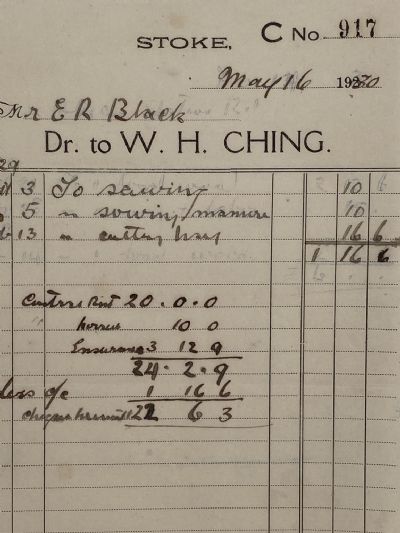 STOKE, C No. 917
May 16 1930
Mr E R Black
Dr. to W. H. CHING.
29
3 To sawing 10
5 " sowing manure 10
13 " cutting hay 16 6
1 16 6
20.0.0
horses 10 0
Insurance 3 12 9
24.2.9
less a/c 1 16 6
cheque herewith 22 6 3